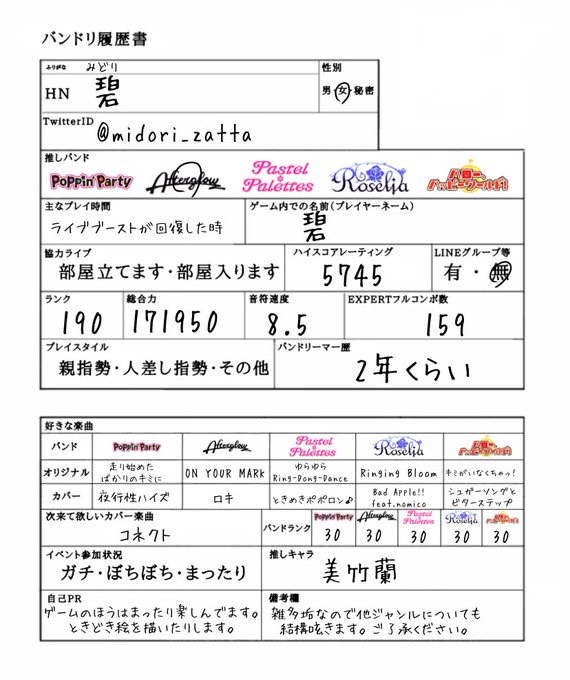 バンドリ履歴書
ふりがな みどり 性別
HN 碧 男・女・秘密
TwitterID
@midori_zatta
推しバンド
Poppin'Party Afterglow Pastel*Palettes Roselia ハロー、ハッピーワールド!
主なプレイ時間 ゲーム内での名前(プレイヤーネーム)
ライブブーストが回復した時 碧
協力ライブ ハイスコアレーティング LINEグループ等
部屋立てます・部屋入ります 5745 有・無
ランク 総合力 音符速度 EXPERTフルコンボ数
190 171950 8.5 159
プレイスタイル バンドリーマー歴
親指勢・人差し指勢・その他 2年くらい
好きな楽曲
バンド Poppin'Party Afterglow Pastel*Palettes Roselia ハロー、ハッピーワールド!
オリジナル 走り始めたばかりのキミに ON YOUR MARK ゆらゆらRing-Dong-Dance Ringing Bloom キミがいなくちゃっ!
カバー 夜行性ハイズ ロキ ときめきポポロン♪ Bad Apple!! feat.nomico シュガーソングとビターステップ
次来て欲しいカバー楽曲 バンドランク Poppin'Party Afterglow Pastel*Palettes Roselia ハロー、ハッピーワールド!
コネクト 30 30 30 30 30
イベント参加状況 推しキャラ
ガチ・ぼちぼち・まったり 美竹蘭
自己PR 備考欄
ゲームのほうはまったり楽しんでます。 雑多垢なので他ジャンルについても
ときどき絵を描いたりします。 結構呟きます。ご了承ください。